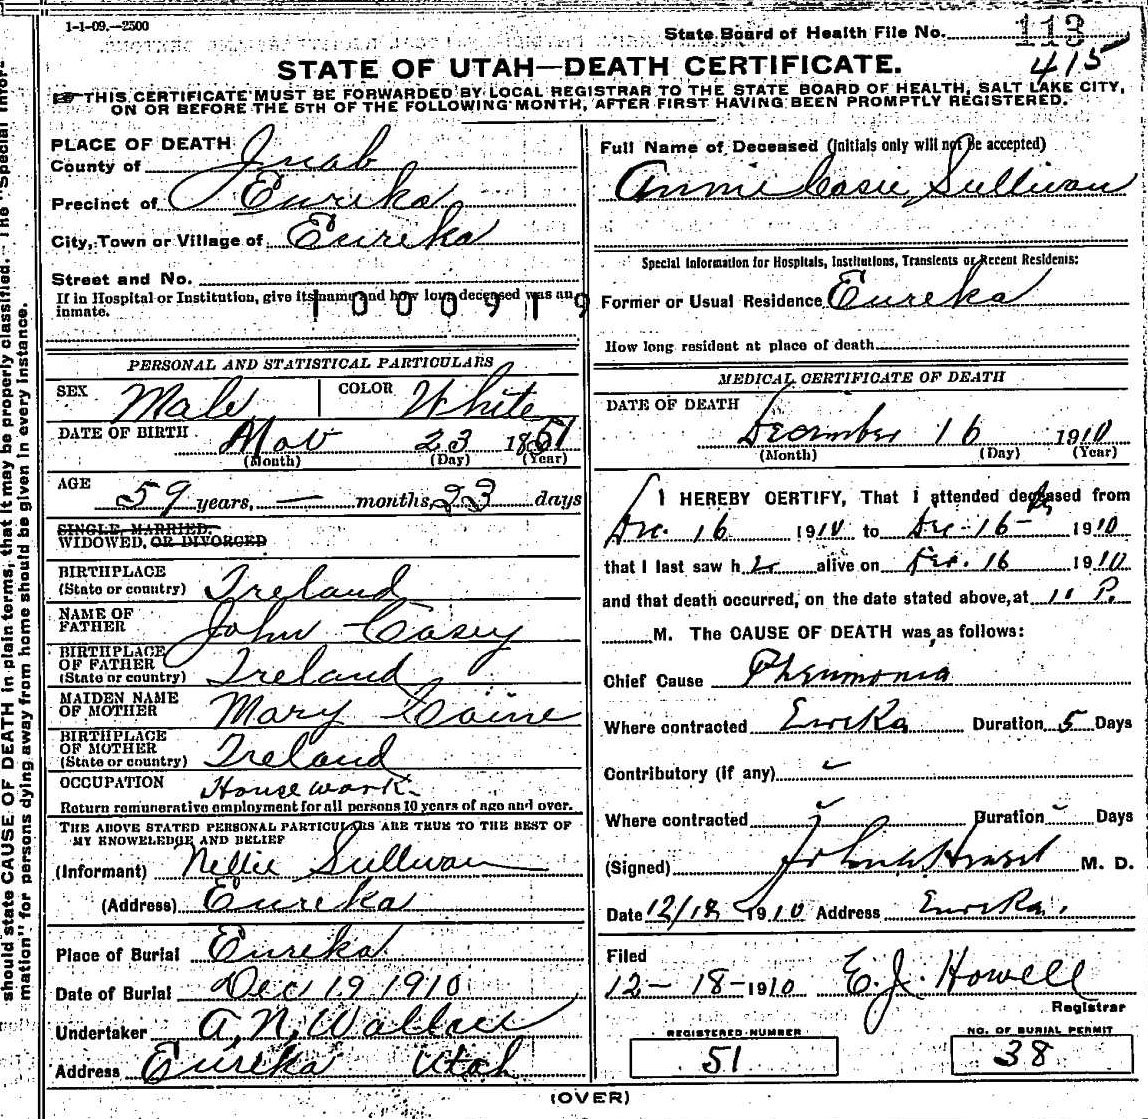 1-1-09.—2500
State Board of Health File No. 113
415
STATE OF UTAH—DEATH CERTIFICATE.
THIS CERTIFICATE MUST BE FORWARDED BY LOCAL REGISTRAR TO THE STATE BOARD OF HEALTH, SALT LAKE CITY,
ON OR BEFORE THE 5TH OF THE FOLLOWING MONTH, AFTER FIRST HAVING BEEN PROMPTLY REGISTERED.
PLACE OF DEATH
County of Juab
Precinct of Eureka
City, Town or Village of Eureka
Street and No.
If in Hospital or Institution, give its name and how long deceased was an
inmate.
1000919
PERSONAL AND STATISTICAL PARTICULARS
SEX Male COLOR White
DATE OF BIRTH Nov 23 1851
(Month) (Day) (Year)
AGE
59 years, — months, 23 days
SINGLE, MARRIED,
WIDOWED, OR DIVORCED
BIRTHPLACE
(State or country) Ireland
NAME OF
FATHER John Casey
BIRTHPLACE
OF FATHER
(State or country) Ireland
MAIDEN NAME
OF MOTHER Mary Caine
BIRTHPLACE
OF MOTHER
(State or country) Ireland
OCCUPATION Housework
Return remunerative employment for all persons 10 years of age and over.
THE ABOVE STATED PERSONAL PARTICULARS ARE TRUE TO THE BEST OF
MY KNOWELEDGE AND BELIEF
(Informant) Nellie Sullivan
(Address) Eureka
Place of Burial Eureka
Date of Burial Dec 19 1910
Undertaker A. N. Wallace
Address Eureka Utah
Full Name of Deceased (Initials only will not be accepted)
Annie Casey Sullivan
Special Information for Hospitals, Institutions, Transients or Recent Residents:
Former or Usual Residence Eureka
How long resident at place of death
MEDICAL CERTIFICATE OF DEATH
DATE OF DEATH
December 16 1910
(Month) (Day) (Year)
I HEREBY CERTIFY, That I attended deceased from
Dec. 16 1910 to Dec-16- 1910
that I last saw h alive on Dec. 16 1910
and that death occurred, on the date stated above, at 11 P.
M. The CAUSE OF DEATH was, as follows:
Chief Cause Pneumonia
Where contracted Eureka Duration 5 Days
Contributory (if any)
Where contracted Duration Days
(Signed) M. D.
Date 12/18 1910 Address Eureka.
Filed
12-18-1910 E. J. Howell
Registrar
REGISTERED NUMBER
51
NO. OF BURIAL PERMIT
38
(OVER)
should state CAUSE OF DEATH in plain terms, that it may be properly classified. The "Special Infor-
mation" for persons dying away from home should be given in every instance.